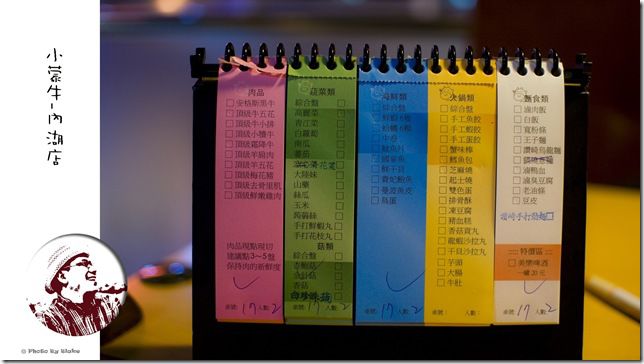 小蒙牛-內湖店
肉品
安格斯黑牛
頂級牛五花
頂級牛小排
頂級小犢牛
頂級霜降牛
頂級羊肩肉
頂級羊五花
頂級梅花豬
頂級去骨里肌
頂級鮮嫩雞肉
肉品現點現切
建議點3~5盤
保持肉的新鮮度
桌號: 17 人數: 2
蔬菜類
綜合盤
高麗菜
青江菜
白蘿蔔
南瓜
蕃茄
大陸妹
山藥
絲瓜
玉米
蒟蒻絲
手打鮮蝦丸
手打花枝丸
菇類
綜合盤
金針菇
香菇
桌號: 17 人數: 2
海鮮類
綜合盤
鮮蝦6隻
蛤蠣6顆
中卷
魷魚片
國宴魚
鮮干貝
貴妃鮑魚
曼波魚皮
鳥蛋
桌號: 17 人數: 2
火鍋類
綜合盤
手工魚餃
手工蝦餃
手工蛋餃
蟹味棒
鱈魚包
芝麻燒
起士燒
雙色蛋
排骨酥
凍豆腐
豬血糕
香菇貢丸
龍蝦沙拉丸
干貝沙拉丸
芋頭
大腸
牛肚
桌號: 17 人數: 2
麵食類
滷肉飯
白飯
寬粉條
王子麵
讚岐烏龍麵
滷鴨血
滷臭豆腐
老油條
豆皮
特價區
美樂啤酒
一罐20元
桌號: 17 人數: 2
© Photo By Blake